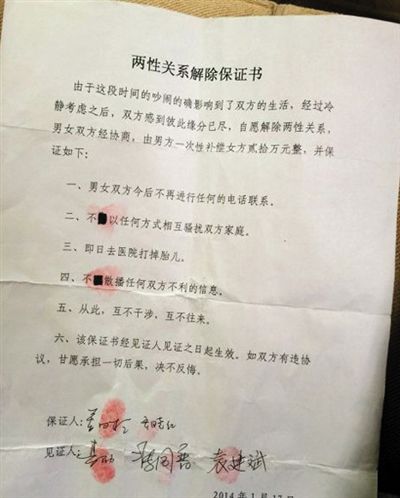 两性关系解除保证书
由于这段时间的吵闹的确影响到了双方的生活，经过冷
静考虑之后，双方感到彼此缘分已尽，自愿解除两性关系，
男女双方经协商，由男方一次性补偿女方贰拾万元整，并保
证如下：
一、男女双方今后不再进行任何的电话联系。
二、不以任何方式相互骚扰双方家庭。
三、即日去医院打掉胎儿。
四、不散播任何双方不利的信息。
五、从此，互不干涉，互不往来。
六、该保证书经见证人见证之日起生效。如双方有造协
议，甘愿承担一切后果，决不反悔。
保证人：
见证人： 袁建斌
2014年1月17日